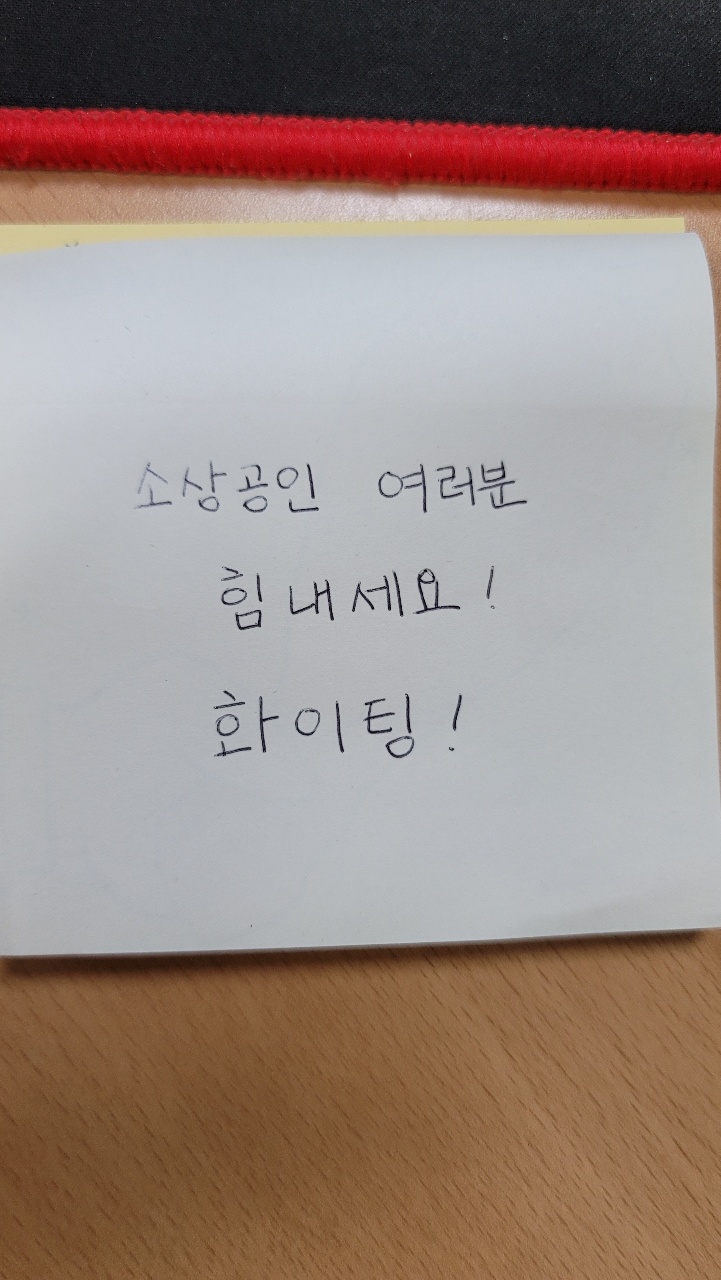 소상공인 여러분
힘내세요!
화이팅!